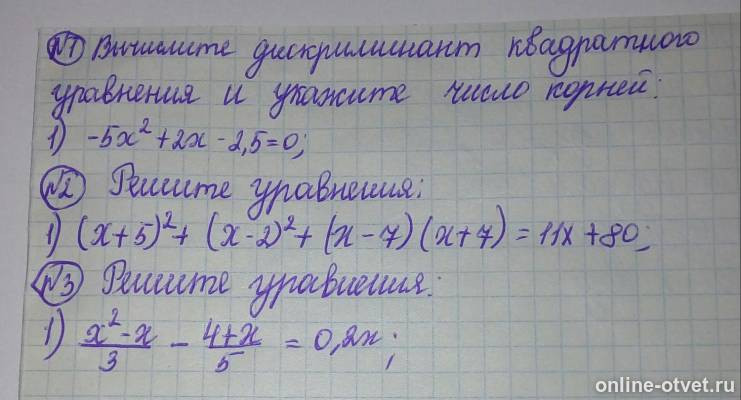 №1 Вычислите дискриминант квадратного
уравнения и укажите число корней:
1) -5x² + 2x - 2,5 = 0;
№2 Решите уравнения:
1) (x+5)² + (x-2)² + (x-7)(x+7) = 11x + 80;
№3 Решите уравнения:
1) (x² - x)/3 - (4+x)/5 = 0,2x;
online-otvet.ru